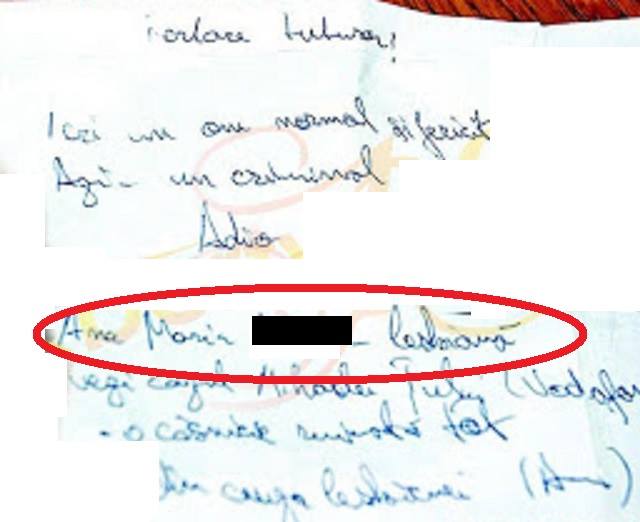 iertare tuturor!
Ieri un om normal și fericit
Azi - un criminal
Adio
Ana Maria - lesbiană
vezi cazul Mihaelei
- o căsnicie ruinată tot
din cauza lesbianei (Ana)